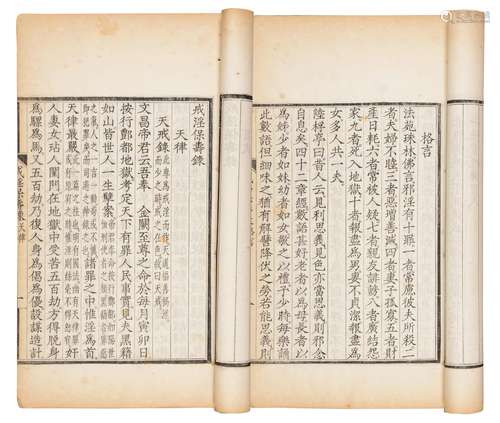 格言
法苑珠林佛言邪淫有十罪一者常慮彼夫所殺二
者夫婦不睦三者惡增善減四者妻子孤寡五者財
產日耗六者常被人疑七者親友誹謗八者廣結怨
家九者死入地獄十者報盡為男妻不貞潔報盡為
女多人共一夫
陸桴亭曰昔人云見利思義見色亦當思義則邪念
自息矣四十二章經數語甚好老者以為母長者以
為姊少者如妹幼者如女敬之以禮予少時每樂誦
此數語但細味之猶有解譬降伏之勞若能思義則
戒淫保壽錄
天律
天戒錄
文昌帝君云吾奉 金闕至尊之命於每月寅卯日
按行酆都地獄考定天下有罪人民事實見夫黑籍
如山皆世人一生孽案
諸罪之中惟淫為首
天律最嚴 天律罪奸
人妻女玷人閨門在地獄中受苦五百劫方得脫身
為騾為馬又五百劫乃復人身為倡為優設謀造計
戒淫保壽錄 天律 一